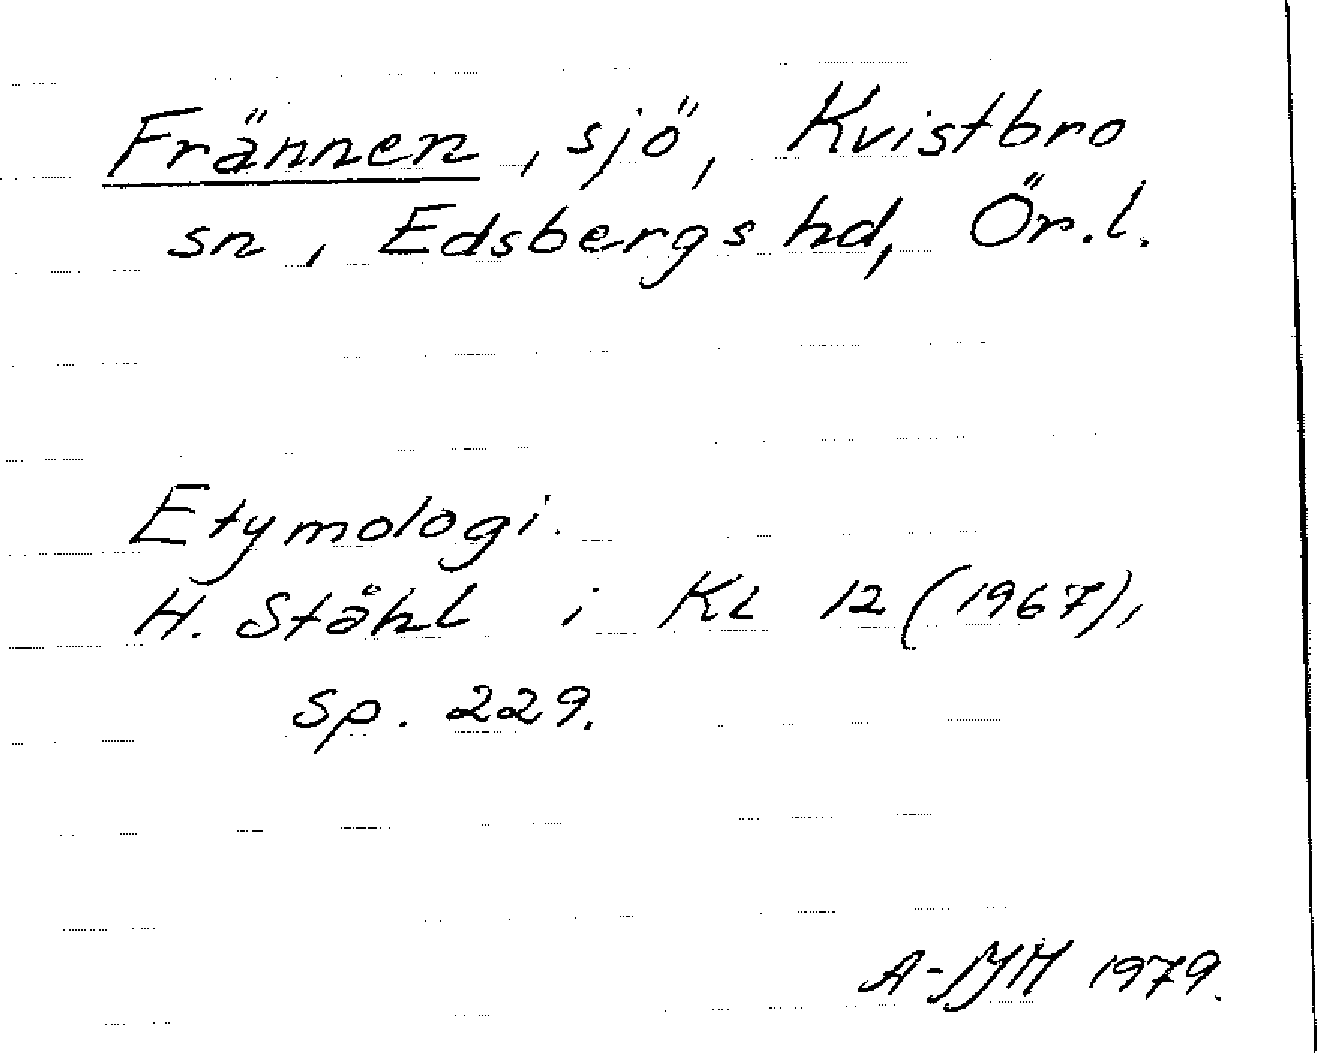 Frännen, sjö, Kvistbro
sn, Edsbergs hd, Ör.l.
Etymologi.
H. Ståhl i KL 12 (1967),
sp. 229.
1979.